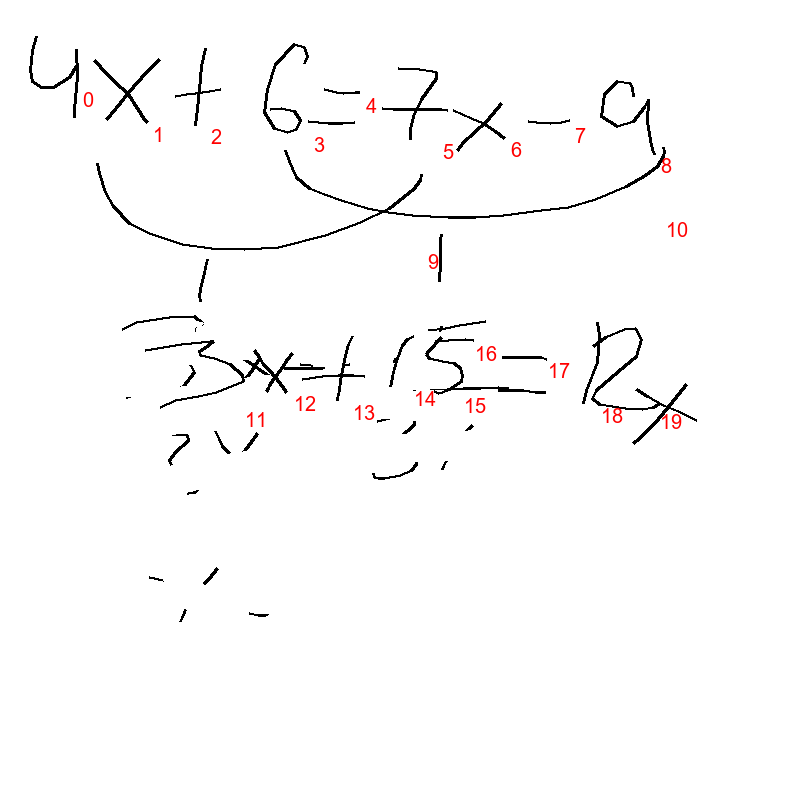 4x + 6 = 7x - 9
0 1 2 3 4 5 6 7 8
9 10
3x + 15 = 12x
11 12 13 14 15 16 17 18 19